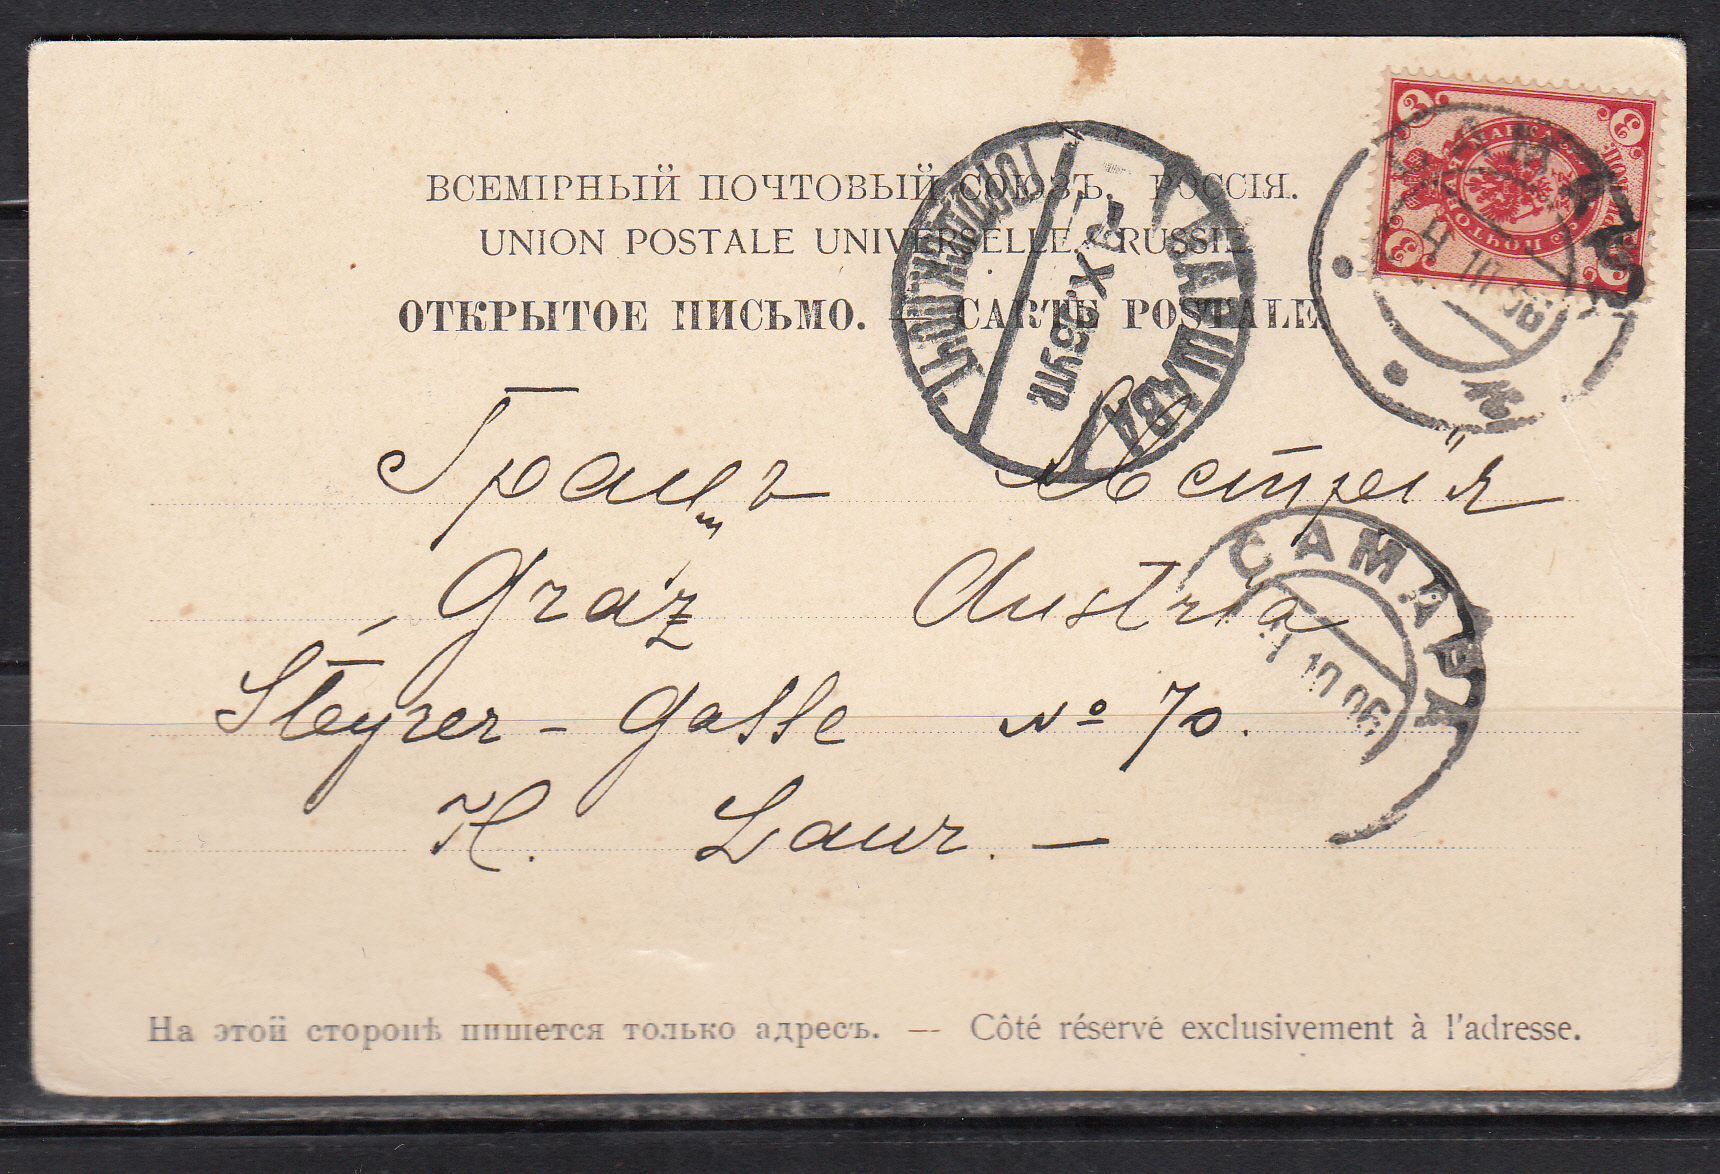 ВСЕМІРНЫЙ ПОЧТОВЫЙ СОЮЗЪ. РОССІЯ.
UNION POSTALE UNIVERSELLE. RUSSIE
ОТКРЫТОЕ ПИСЬМО. — CARTE POSTALE
ВАРШАВА
САМАРА
4 10 06
3 3 3 3
Грацъ Австрія
Graz Austria
САМАРА
4 10 06
Steyrer - Gasse № 70.
H. Laur. —
На этой сторонѣ пишется только адресъ. — Côté réservé exclusivement à l'adresse.